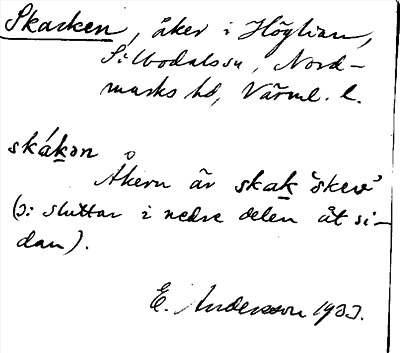 Skacken, åker i Höglian,
Silbodals sn, Nord-
marks hd, Värml. l.
skákən
Åkern är skak 'skev'
(ɔ: sluttar i nedre delen åt si-
dan).
E. Andersson 1933.